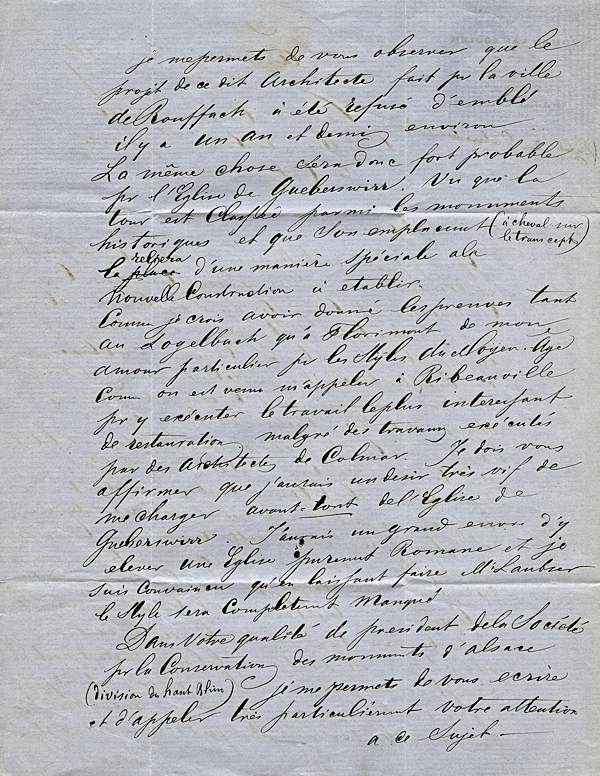 je me permets de vous observer que le
projet de ce dit Architecte fait pr la ville
de Rouffach a été refusé d'emblé
il y a un an et demi environ
La même chose sera donc fort probable
pr l'Eglise de Gueberswirr. Vu que la
tour est Classée parmi les monuments
historiques et que son emplacemt (à cheval sur
le transcept)
reliera
la place d'une manière spéciale a la
nouvelle Construction à etablir.
Comme je crois avoir donné les preuves tant
au Logelbach qu'à Florimont de mon
amour particulier pr les Styles du Moyen-Age
Comme on est venu m'appeler à Ribeauville
pr y exécuter le travail le plus interessant
de restauration, malgré des travaux exécutés
par des Architectes de Colmar. Je dois vous
affirmer que j'aurais un desir très vif de
me charger avant-tout de l'Eglise de
Gueberswirr. J'aurais un grand envie d'y
elever une Eglise puremt Romane et je
suis Convaincu qu'en laissant faire Mr Laubser
le Style sera Completemt manqué
Dans Votre qualité de president de la Societé
pr la Conservation des monumts d'alsace
(division du haut Rhin) je me permets de vous ecrire
et d'appeler très particulièremt votre attention
a ce Sujet —